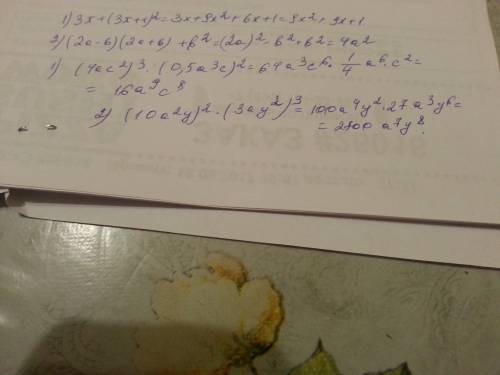 1) 3x+(3x+1)²=3x+9x²+6x+1=9x²+9x+1
2) (2a-b)(2a+b)+b²=(2a)²-b²+b²=4a²
1) (4ac²)³·(0,5a³c)²=64a³c⁶·1/4 a⁶·c²=
=16a⁹c⁸
2) (10a²y)²·(3ay²)³=100a⁴y²·27a³y⁶=
=2700a⁷y⁸.
ЗАКАЗ